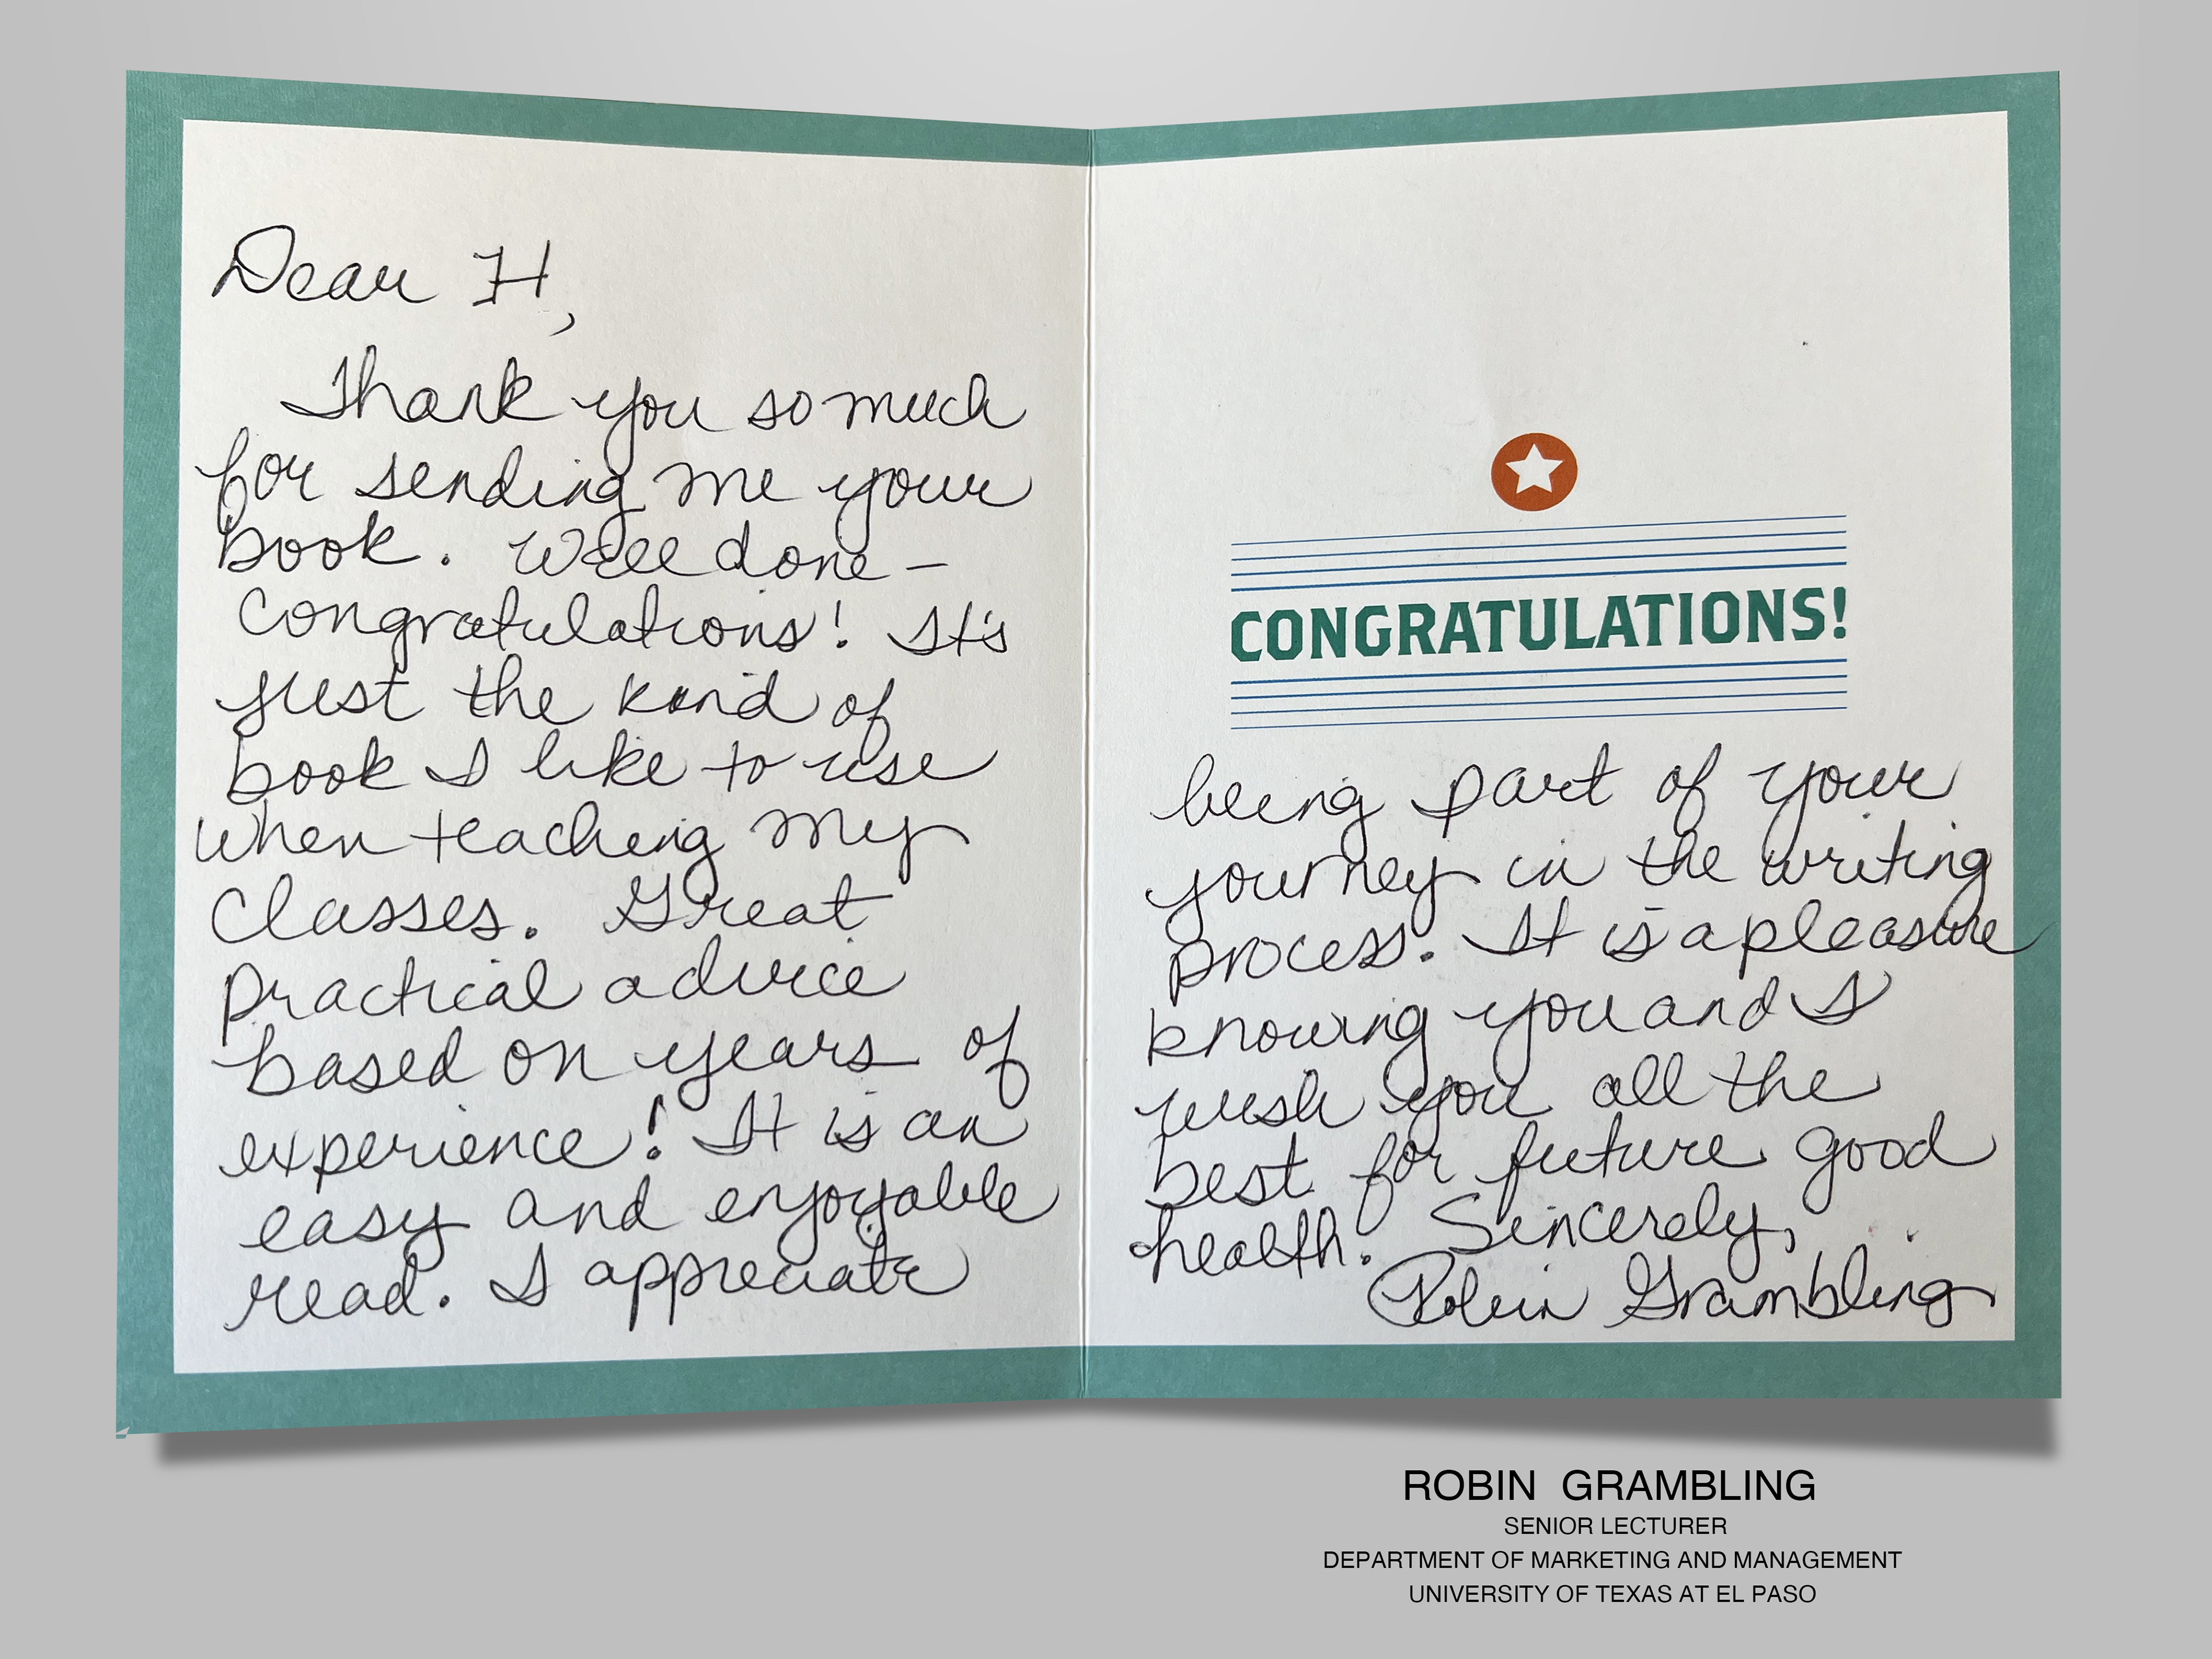 Dear H,
Thank you so much
for sending me your
book. Well done -
Congratulations! It's
just the kind of
book I like to use
when teaching my
classes. Great
practical advice
based on years of
experience! It is an
easy and enjoyable
read. I appreciate
CONGRATULATIONS!
being part of your
journey in the writing
process. It is a pleasure
knowing you and I
wish you all the
best for future good
health. Sincerely,
Robin Grambling
ROBIN GRAMBLING
SENIOR LECTURER
DEPARTMENT OF MARKETING AND MANAGEMENT
UNIVERSITY OF TEXAS AT EL PASO